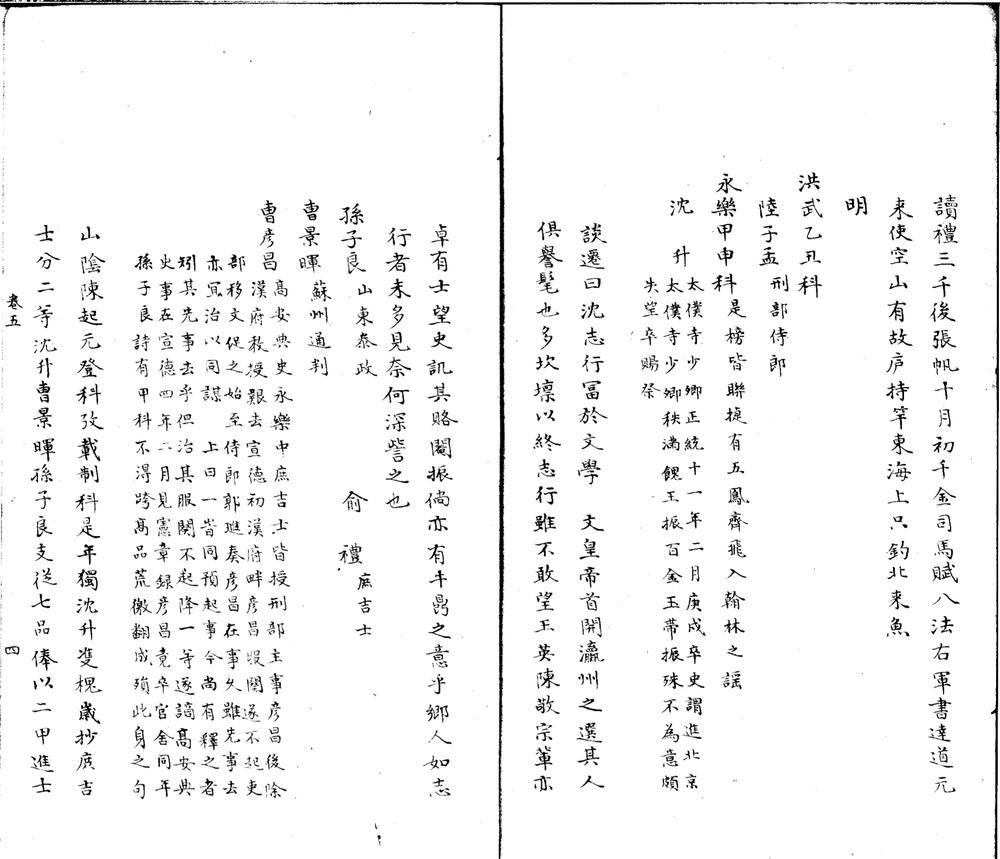 讀禮三千後張帆十月初千金司馬賦八法右軍書達道元
来使空山有故庐持竿東海上只釣北来魚
明
洪武乙丑科
陸子孟 刑部侍郎
永樂甲申科 是榜皆聯捷有五鳳齊飛入翰林之謡
沈升 太僕寺少卿正統十一年二月庚戌卒史謂進北京
太僕寺少卿秩满餽王振百金玉帶振殊不為意頗
失望卒賜祭
談遷曰沈志行冨於文學 文皇帝首開瀛州之選其人
俱譽髦也多坎壈以終志行雖不敢望王英陳敬宗軰亦
卓有士望史訊其賂閹振倘亦有牛昺之意乎鄉人如志
行者未多見奈何深訾之也
孫子良 山東叅政 俞禮 庶吉士
曹景暉 蘇州通判
曹彦昌 髙安典史永樂中庶吉士皆授刑部主事彦昌後除
漢府教授艱去宣德初漢府畔彦昌服闋遂不起吏
部移文促之始至侍郎郭璡奏彦昌在事乆雖先事去
亦冝治以同謀 上曰一皆同預起事今尚有釋之者
矧其先事去乎但治其服闋不起降一等遂謫髙安典
史事在宣德四年二月見憲章録彦昌竟卒官舍同年
孫子良詩有甲科不淂跨髙品荒徼翻成殞此身之句
山隂陳起元登科攷載制科是年獨沈升㕠槐嵗抄庶吉
士分二等沈升曹景暉孫子良支従七品俸以二甲進士
卷五 四